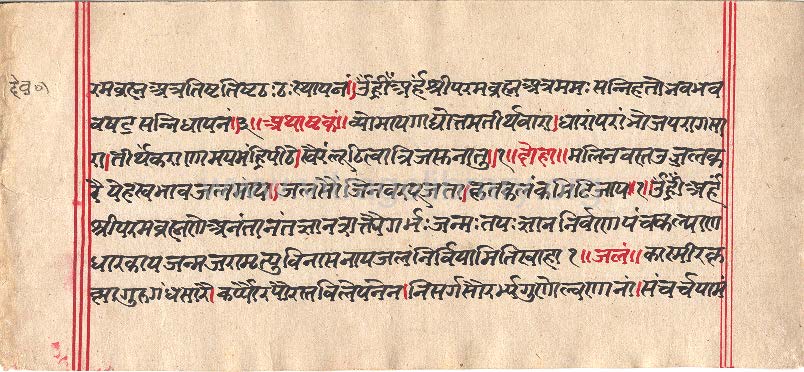 देव० १
रमब्रह्मअत्रतिष्टतिष्टठःठःस्थापनं।ॐह्रीँअर्हंश्रीपरमब्रह्मअत्रममःसन्निहतोभवभव
वषट्सन्निधापनं३॥अथाष्टकं॥व्योमापगाद्योत्तमतीर्थवारा।धारांपरांभोजपरागसा
रा।तीर्थंकराणामयमंह्रिपीठे।त्रिजगन्नातु।१॥दोहा॥मलिनवस्तउज्जलक
रेयेहस्वभावजलमांय।जलसौंजिनवरपूजतां।कृतकलंकमिटिजाय।१।ॐह्रीँअर्हं
श्रीपरमब्रह्मणेअनंतानंतज्ञानशक्तयेगर्भःजन्मःतपःज्ञाननिर्वाणपंचकल्याण
धारकायजन्मजरामृत्युविनासनायजलंनिर्विपामितिस्वाहा१॥जलं॥कास्मीरकृ
ह्मागुरुगंधसारौकर्प्पौरपौरस्तविलेपनेन।निसर्गसौरभ्यगुणोल्वणानां।संचर्चयामं